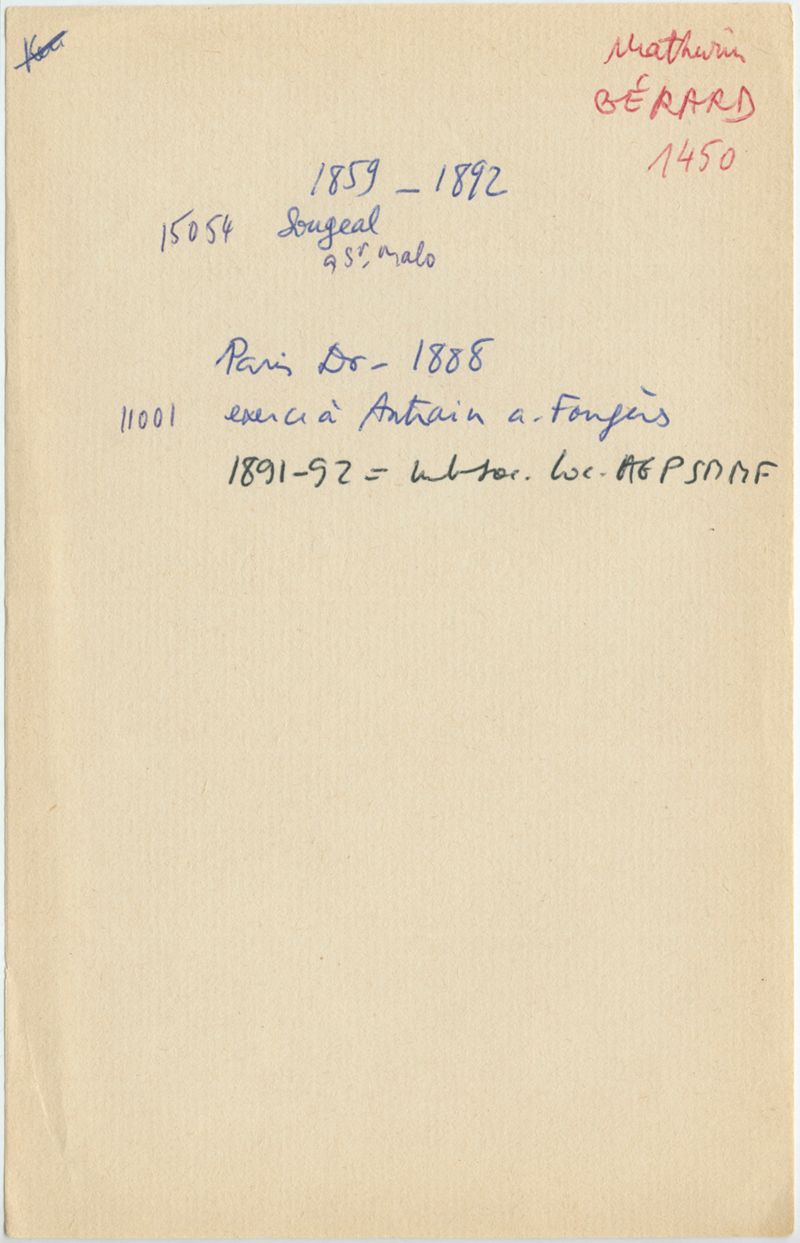 Mathurin
BÉRARD
1450
1859 - 1892
15054 Sougeal
a St. Malo
Paris Dr - 1888
11001 exerce à Antrain a. Fougères
1891-92 = loc. AGPSMMF